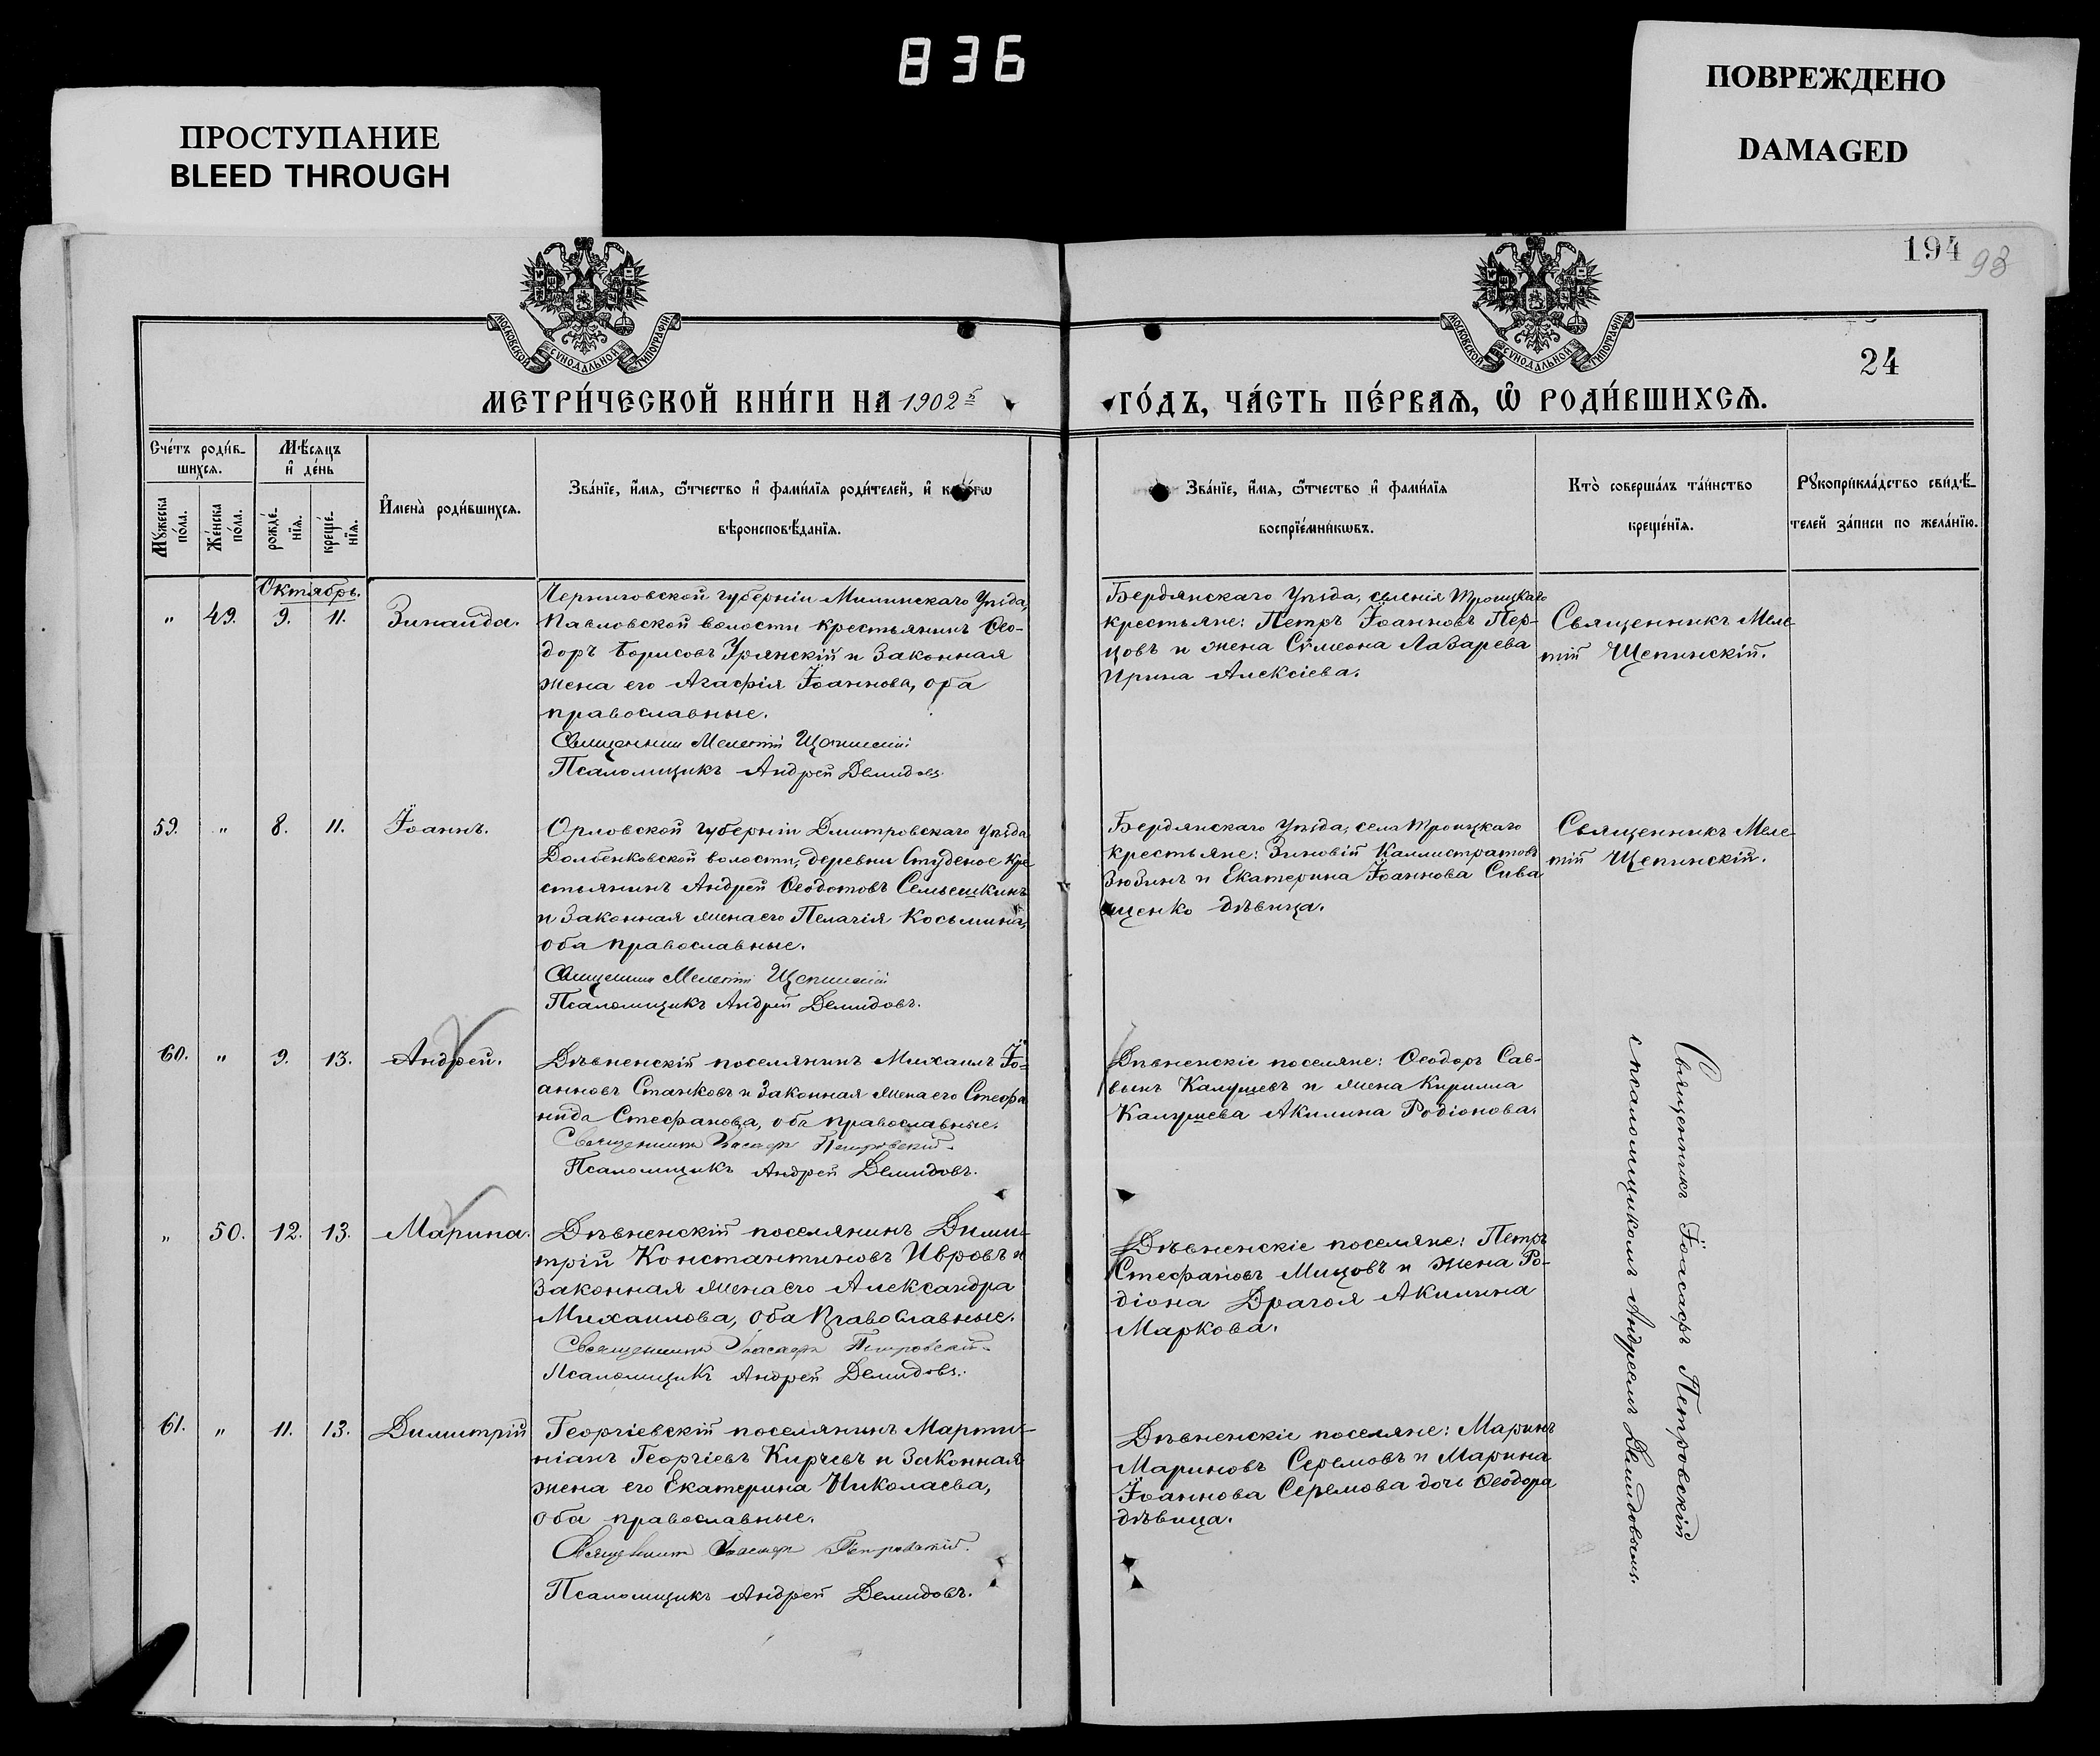 836
ПРОСТУПАНИЕ
BLEED THROUGH
ПОВРЕЖДЕНО
DAMAGED
194
98
24
МОСКОВСКОЙ СѴНОДАЛЬНОЙ ТИПОГРАФІИ
МОСКОВСКОЙ СѴНОДАЛЬНОЙ ТИПОГРАФІИ
МЕТРИ́ЧЕСКОЙ КНИ́ГИ НА 1902 й
ГО́ДЪ, ЧА́СТЬ ПЕ́РВАѦ, Ѡ РОДИ́ВШИХСѦ.
Сче́тъ роди́в-
шихсѧ.
Мꙋжеска
по́ла.
Же́нска
по́ла.
Мѣ́сѧцъ
и҆ де́нь
рожде́-
нїѧ.
креще́-
нїѧ.
И҆мена̀ роди́вшихсѧ.
Зва́нїе, и҆́мѧ, ѻ҆́тчество и҆ фами́лїѧ роди́телей, и҆
вѣроисповѣ́данїѧ.
Зва́нїе, и҆́мѧ, ѻ҆́тчество и҆ фами́лїѧ
воспрїе́мникѡвъ.
Кто̀ соверша́лъ та́инство
креще́нїѧ.
Рꙋкоприкла́дство свидѣ́-
телей за́писи по жела́нїю.
Октябрь.
" 49. 9. 11. Зинаида.
Черниговской губерніи Уѣзда,
Павловской волости крестьянинъ Ѳео-
доръ Борисовъ Урянскій и законная
жена его Агаѳія Іоаннова, оба
православные.
Священникъ Мелетій Щепинскій
Псаломщикъ Андрей Демидовъ.
Бердянскаго Уѣзда, селенія Троицкаго
крестьяне: Петръ Іоанновъ Пер-
цовъ и жена Сѵмеона Лазарева
Ирина Алексіева.
Священникъ Меле-
тій Щепинскій.
59. " 8. 11. Іоаннъ.
Орловской губерніи Дмитровскаго Уѣзда
Долбенковской волости, деревни Студеное кре
стьянинъ Андрей Ѳеодотовъ Семьешкинъ
и законная жена его Пелагія Косьмина,
оба православные.
Священникъ Мелетій Щепинскій
Псаломщикъ Андрей Демидовъ.
Бердянскаго Уѣзда, села Троицкаго
крестьяне: Зиновій Каллистратовъ
Зюзинъ и Екатерина Іоаннова Сива
щенко дѣвица.
Священникъ Меле-
тій Щепинскій.
60. " 9. 13. Андрей.
Дѣвненскій поселянинъ Михаилъ Іо-
анновъ Станковъ и законная жена его Стефа
нида Стефанова, оба православные.
Священникъ Іоасафъ Петровскій.
Псаломщикъ Андрей Демидовъ.
Дѣвненскіе поселяне: Ѳеодоръ Сав-
винъ Калушевъ и жена Кирилла
Калушева Акилина Родіонова.
" 50. 12. 13. Марина.
Дѣвненскій поселянинъ Дими-
трій Константиновъ Ивровъ и
законная жена его Александра
Михаилова, оба православные.
Священникъ Іоасафъ Петровскій.
Псаломщикъ Андрей Демидовъ.
Дѣвненскіе поселяне: Петръ
Стефановъ Мицовъ и жена Ро-
діона Драгоя Акилина
Маркова.
61. " 11. 13. Димитрій
Георгіевскій поселянинъ Марти-
ніанъ Георгіевъ Кирчевъ и законная
жена его Екатерина Николаева,
оба православные.
Священникъ Іоасафъ Петровскій.
Псаломщикъ Андрей Демидовъ.
Дѣвненскіе поселяне: Маринъ
Мариновъ Серемовъ и Марина
Іоаннова Серемова дочь Ѳеодора
дѣвица.
Священникъ Іоасафъ Петровскій
с псаломщикомъ Андреемъ Демидовымъ.